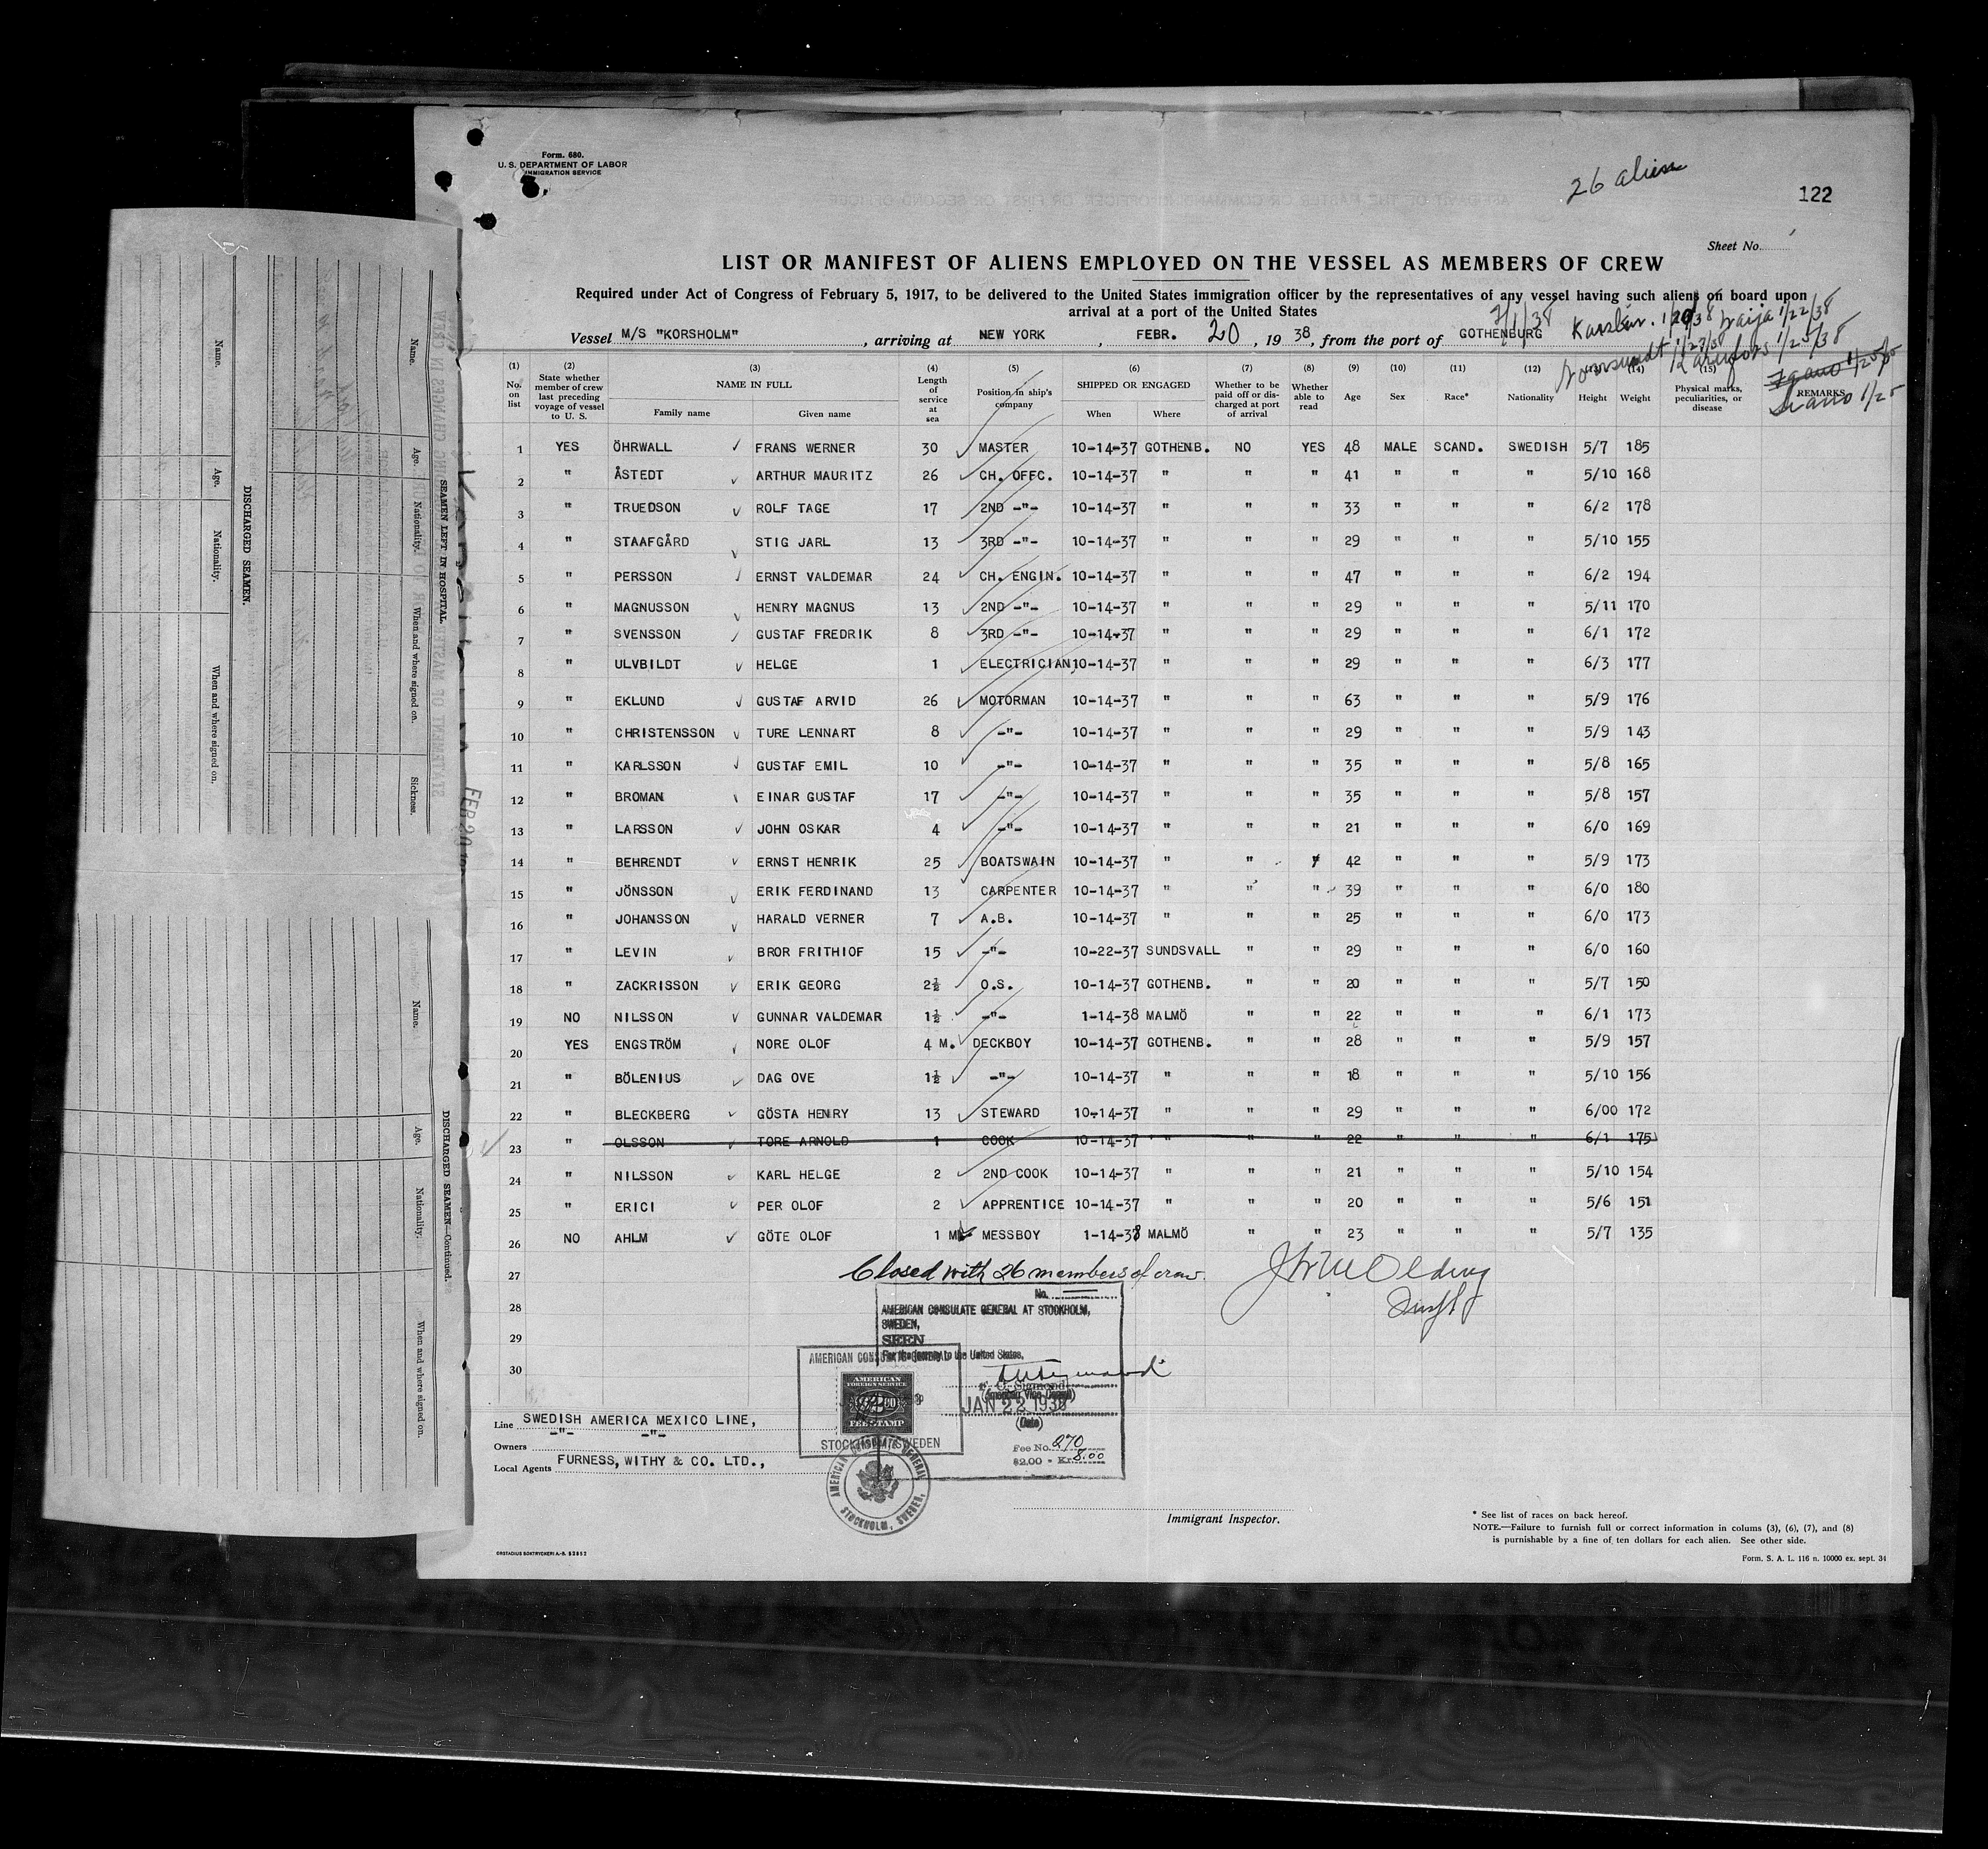 Form. 680.
U. S. DEPARTMENT OF LABOR
IMMIGRATION SERVICE
26 aliens
122
Sheet No.
LIST OR MANIFEST OF ALIENS EMPLOYED ON THE VESSEL AS MEMBERS OF CREW
Required under Act of Congress of February 5, 1917, to be delivered to the United States immigration officer by the representatives of any vessel having such aliens on board upon
arrival at a port of the United States
Vessel M/S "KORSHOLM", arriving at NEW YORK, FEBR. 20, 1938, from the port of GOTHENBURG
2/1/38 1/20/38 1/22/38
1/27/38 1/25/38
1/25
(1) (2) (3) (4) (5) (6) (7) (8) (9) (10) (11) (12) (14) (15)
No. on list State whether member of crew last preceding voyage of vessel to U. S. NAME IN FULL Family name Given name Length of service at sea Position in ship's company SHIPPED OR ENGAGED When Where Whether to be paid off or discharged at port of arrival Whether able to read Age Sex Race* Nationality Height Weight Physical marks, peculiarities, or disease REMARKS
1 YES ÖHRWALL FRANS WERNER 30 MASTER 10-14-37 GOTHENB. NO YES 48 MALE SCAND. SWEDISH 5/7 185
2 " ÅSTEDT ARTHUR MAURITZ 26 CH. OFFC. 10-14-37 " " " 41 " " " 5/10 168
3 " TRUEDSON ROLF TAGE 17 2ND -"- 10-14-37 " " " 33 " " " 6/2 178
4 " STAAFGÅRD STIG JARL 13 3RD -"- 10-14-37 " " " 29 " " " 5/10 155
5 " PERSSON ERNST VALDEMAR 24 CH. ENGIN. 10-14-37 " " " 47 " " " 6/2 194
6 " MAGNUSSON HENRY MAGNUS 13 2ND -"- 10-14-37 " " " 29 " " " 5/11 170
7 " SVENSSON GUSTAF FREDRIK 8 3RD -"- 10-14-37 " " " 29 " " " 6/1 172
8 " ULVBILDT HELGE 1 ELECTRICIAN 10-14-37 " " " 29 " " " 6/3 177
9 " EKLUND GUSTAF ARVID 26 MOTORMAN 10-14-37 " " " 63 " " " 5/9 176
10 " CHRISTENSSON TURE LENNART 8 -"- 10-14-37 " " " 29 " " " 5/9 143
11 " KARLSSON GUSTAF EMIL 10 -"- 10-14-37 " " " 35 " " " 5/8 165
12 " BROMAN EINAR GUSTAF 17 -"- 10-14-37 " " " 35 " " " 5/8 157
13 " LARSSON JOHN OSKAR 4 -"- 10-14-37 " " " 21 " " " 6/0 169
14 " BEHRENDT ERNST HENRIK 25 BOATSWAIN 10-14-37 " " " 42 " " " 5/9 173
15 " JÖNSSON ERIK FERDINAND 13 CARPENTER 10-14-37 " " " 39 " " " 6/0 180
16 " JOHANSSON HARALD VERNER 7 A.B. 10-14-37 " " " 25 " " " 6/0 173
17 " LEVIN BROR FRITHIOF 15 -"- 10-22-37 SUNDSVALL " " 29 " " " 6/0 160
18 " ZACKRISSON ERIK GEORG 2½ O.S. 10-14-37 GOTHENB. " " 20 " " " 5/7 150
19 NO NILSSON GUNNAR VALDEMAR 1½ -"- 1-14-38 MALMÖ " " 22 " " " 6/1 173
20 YES ENGSTRÖM NORE OLOF 4 M. DECKBOY 10-14-37 GOTHENB. " " 28 " " " 5/9 157
21 " BÖLENIUS DAG OVE 1½ -"- 10-14-37 " " " 18 " " " 5/10 156
22 " BLECKBERG GÖSTA HENRY 13 STEWARD 10-14-37 " " " 29 " " " 6/00 172
23 " OLSSON TORE ARNOLD 1 COOK 10-14-37 " " " 22 " " " 6/1 175
24 " NILSSON KARL HELGE 2 2ND COOK 10-14-37 " " " 21 " " " 5/10 154
25 " ERICI PER OLOF 2 APPRENTICE 10-14-37 " " " 20 " " " 5/6 151
26 NO AHLM GÖTE OLOF 1 M MESSBOY 1-14-38 MALMÖ " " 23 " " " 5/7 135
27 Closed with 26 members of crew.
28
29
30
No.
AMERICAN CONSULATE GENERAL AT STOCKHOLM,
SWEDEN,
SEEN
For the journey to the United States,
(American Vice Consul)
JAN 22 1938
(Date)
Fee No. 270
$2.00 = Kr. 8.00
AMERICAN CONSULATE GENERAL
AMERICAN
FOREIGN SERVICE
FEE STAMP
STOCKHOLM, SWEDEN
AMERICAN CONSULATE GENERAL
STOCKHOLM, SWEDEN.
Line SWEDISH AMERICA MEXICO LINE,
Owners -"- -"-
Local Agents FURNESS, WITHY & CO. LTD.,
Immigrant Inspector.
* See list of races on back hereof.
NOTE.—Failure to furnish full or correct information in colums (3), (6), (7), and (8)
is punishable by a fine of ten dollars for each alien. See other side.
Form. S. A. L. 116 n. 10000 ex. sept. 34
SEAMEN LEFT IN HOSPITAL.
Name. Age. Nationality. When and where signed on. Sickness.
DISCHARGED SEAMEN.
Name. Age. Nationality. When and where signed on.
DISCHARGED SEAMEN—Continued.
Name. Age. Nationality. When and where signed on.
FEB 20